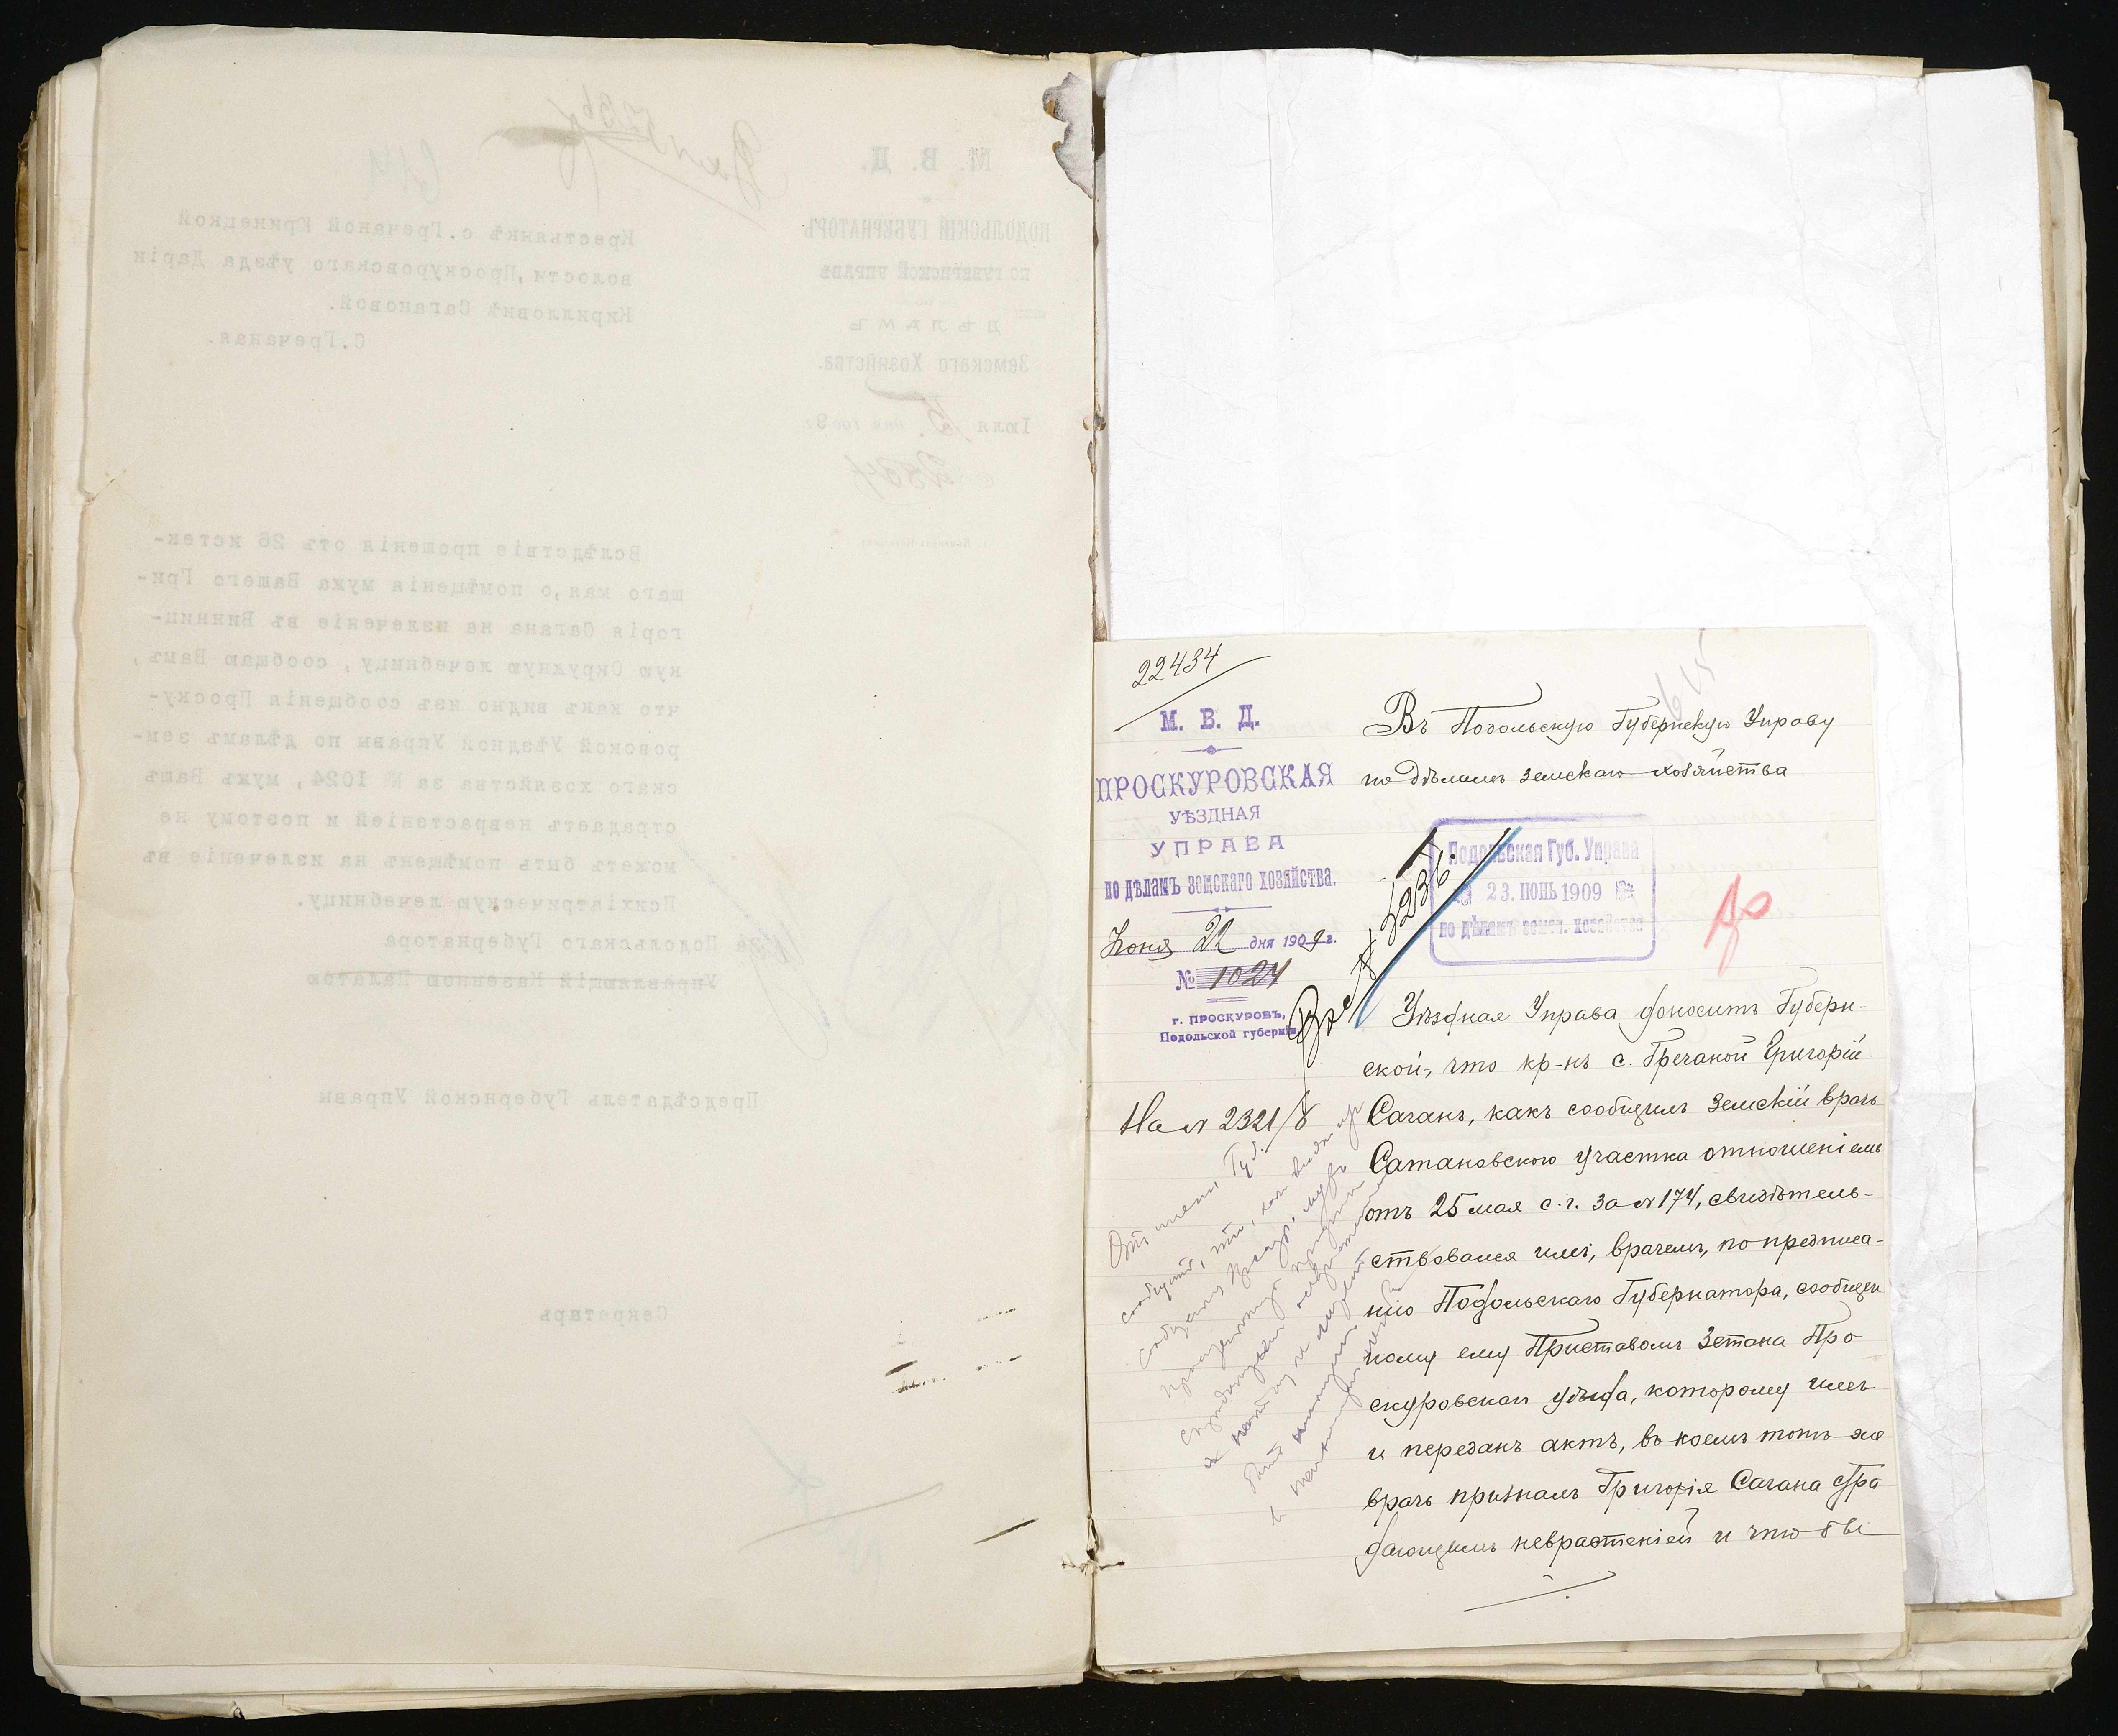 М. В. Д.
ПОДОЛЬСКІЙ ГУБЕРНАТОРЪ
ПО ГУБЕРНСКОЙ УПРАВѢ
ПО
ДѢЛАМЪ
Земскаго Хозяйства.
Іюля 5 дня 1909 г.
Крестьянкѣ с.Гречаной Криницкой
волости,Проскуровскаго уѣзда Даріи
Кирилловнѣ Сагановой.
С.Гречаная.
Вслѣдствіе прошенія отъ 26 истек-
шаго мая,о помѣщенія мужа Вашего Гри-
горія Сагана на излеченіе въ Винниц-
кую Окружную лечебницу, сообщаю Вамъ,
что какъ видно изъ сообщенія Проску-
ровской Уѣздной Управы по дѣламъ зем-
скаго хозяйства за № 1024, мужъ Вашъ
страдаетъ неврастеніей и поэтому не
можетъ быть помѣщенъ на излеченіе въ
Психіатрическую лечебницу.
За Подольскаго Губернатора
Управляющій Казенною Палатою
Предсѣдатель Губернской Управы
Секретарь
22434
М. В. Д.
ПРОСКУРОВСКАЯ
УѢЗДНАЯ
УПРАВА
по дѣламъ земскаго хозяйства.
Іюня 22 дня 1909 г.
№ 1024
г. ПРОСКУРОВЪ,
Подольской губерніи
На № 2321/8
Въ Подольскую Губернскую Управу
по дѣламъ земскаго хозяйства
Подольская Губ. Управа
23. ІЮНЬ 1909
по дѣламъ земск. хозяйства
Вх. № 5236
Уѣздная Управа доноситъ Губерн-
ской, что кр-нъ с. Гречаной Григорій
Саганъ, какъ сообщилъ Земскій врачъ
Сатановского участка отношеніемъ
отъ 25 мая с.г. за № 174, свидѣтель-
ствовался имъ, врачемъ, по предписа-
нію Подольскаго Губернатора, сообщен
ному ему Приставомъ 3 стана Про
скуровскаго уѣзда, которому имъ
и переданъ актъ, въ коемъ тотъ же
врачъ призналъ Григорія Сагана стра
дающимъ неврастеніей и что